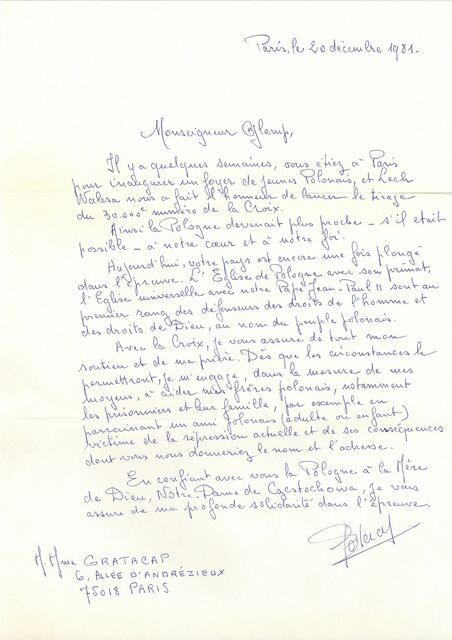 Paris, le 20 décembre 1981.
Monseigneur Glemp,
Il y a quelques semaines, vous étiez à Paris
pour inaugurer un foyer de jeunes Polonais, et Lech
Walesa nous a fait l'honneur de lancer le tirage
du 30.000e numéro de la Croix.
Ainsi la Pologne devenait plus proche - s'il était
possible - à notre cœur et à notre foi.
Aujourd'hui, votre pays est encore une fois plongé
dans l'épreuve. L'Eglise de Pologne avec son primat,
l'Eglise universelle avec notre Pape Jean-Paul II sont au
premier rang des défenseurs des droits de l'homme et
des droits de Dieu, au nom du peuple polonais.
Avec la Croix, je vous assure de tout mon
soutien et de ma prière. Dès que les circonstances le
permettront, je m'engage, dans la mesure de mes
moyens, à aider nos frères polonais, notamment
les prisonniers et leur famille, par exemple en
parrainant un ami polonais (adulte ou enfant)
victime de la répression actuelle et de ses conséquences
dont vous nous donneriez le nom et l'adresse.
En confiant avec vous la Pologne à la Mère
de Dieu, Notre-Dame de Czestochowa, je vous
assure de ma profonde solidarité dans l'épreuve.
M. Mme GRATACAP
6, ALLEE D'ANDRÉZIEUX
75018 PARIS